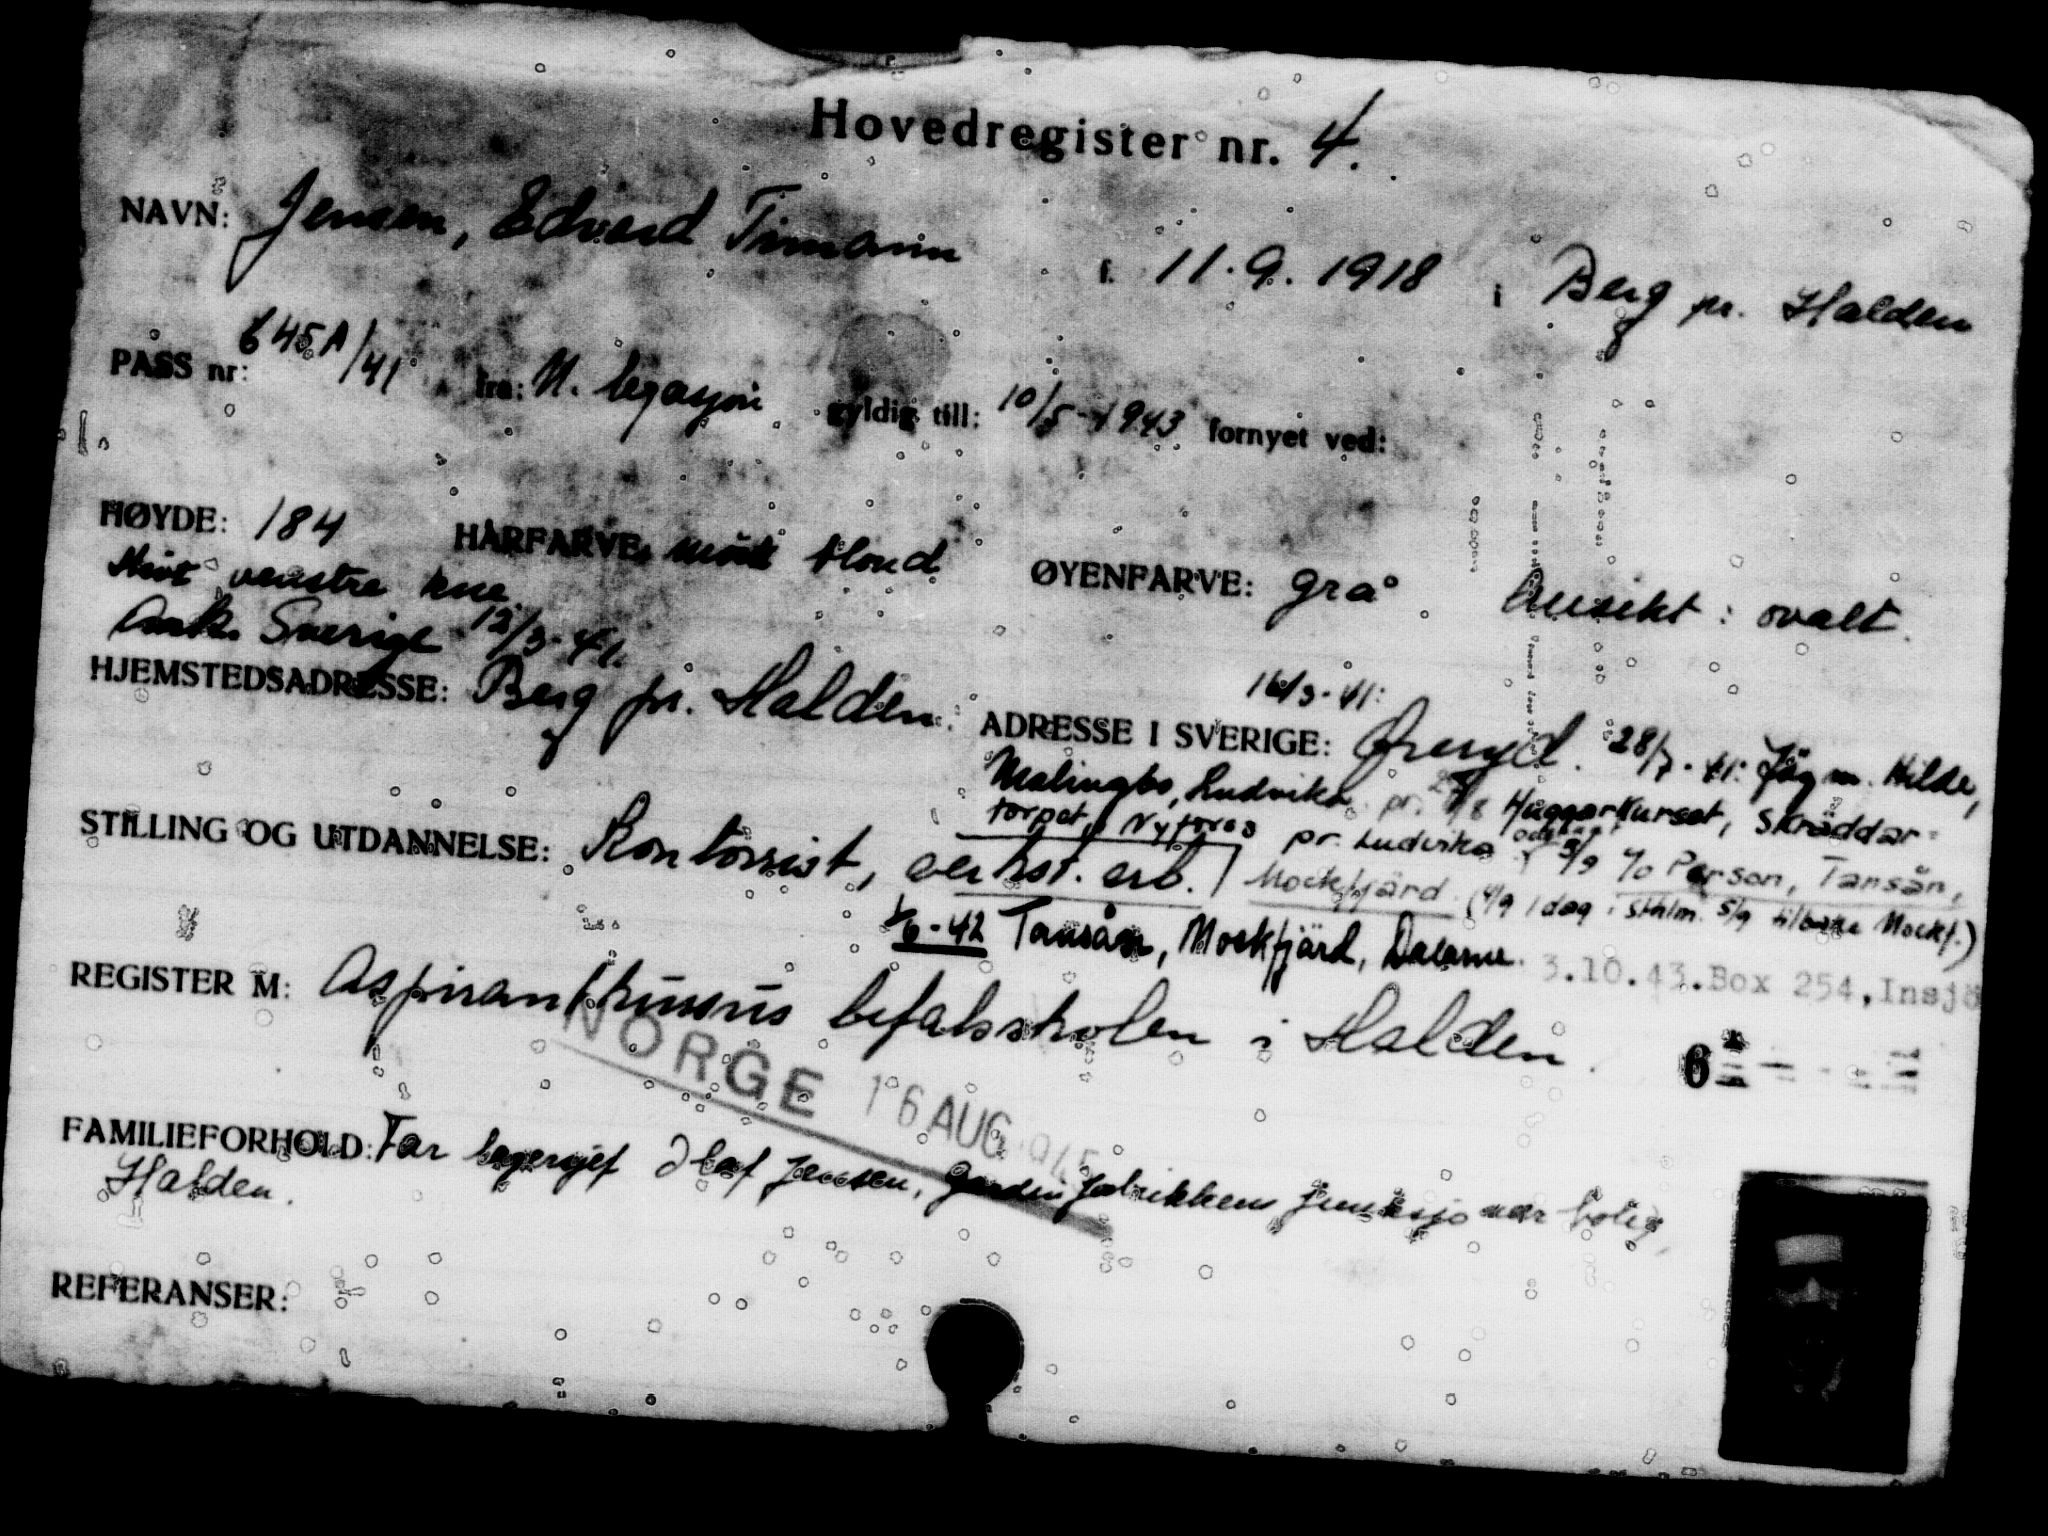 Hovedregister nr. 4.
NAVN: Jensen, Edvard Timann f. 11.9.1918 i Berg pr. Halden
PASS nr: 645A/41 fra: N. legasjon gyldig till: 10/5-1943 fornyet ved:
HØYDE: 184 HÅRFARVE: mørk blond ØYENFARVE: grå Ansikt: ovalt.
venstre kne.
Ank. Sverige 12/3-41.
HJEMSTEDSADRESSE: Berg pr. Halden.
16/3-41:
ADRESSE I SVERIGE: Øreryd. 28/7-41: Jägm. Hilde,
Malingsbo, Ludvika. pr. /8 Huggarkurset, Skräddar-
torpet, Nyfors pr. Ludvika 5/9 c/o Person, Tansån,
Mockfjärd. (4/9 idag i Sthlm. 5/9 tilbake Mockf.)
STILLING OG UTDANNELSE: Kontorist,
1/6-42 Tansån, Mockfjärd, Dalarne. 3.10.43.Box 254,Insjö
REGISTER M: Aspirantkursus befalsskolen i Halden.
NORGE 16 AUG 1945
6
FAMILIEFORHOLD: Far lagersjef Olaf Jensen, fabrikkens bolig,
Halden.
REFERANSER: